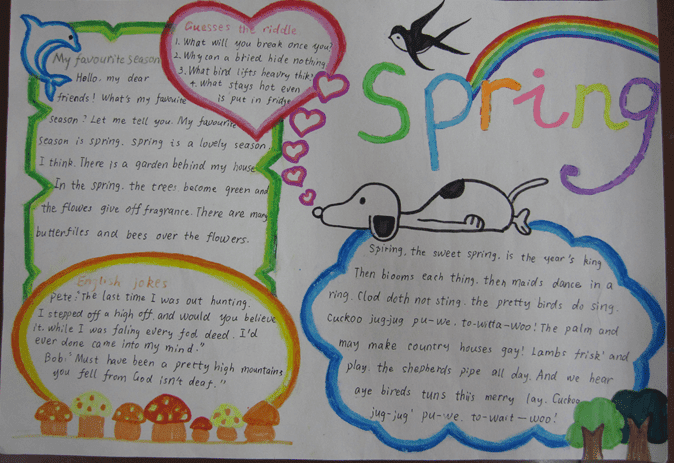 My favourite season
Hello, my dear
friends! What's my favourite
season? Let me tell you. My favourite
season is spring. Spring is a lovely season.
I think. There is a garden behind my house
In the spring. the trees. become green and
the flowes give off fragrance. There are many
butterfiles and bees over the flowers.
Guesses the riddle
1. What will you break once you?
2. Why can a bried hide nothing
3. What bird lifts heavry thik?
4. What stays hot even
is put in fridge
Spring
English jokes
Pete: "The last time I was out hunting.
I stepped off a high off. and would you believe
it. while I was faling every fod deed. I'd
ever done came into my mind."
Bob: "Must have been a pretty high mountains
you fell from God isn't deaf."
Spiring, the sweet spring. is the year's king
Then blooms each thing. then maids dance in a
ring. Clod doth not sting. the pretty birds do sing.
Cuckoo jug-jug pu-we. to-witta-woo! The palm and
may make country houses gay! Lambs frisk' and
play. the shepherds pipe all day. And we hear
aye bireds tuns this merry lay. Cuckoo
jug-jug' pu-we. to-wait-woo!